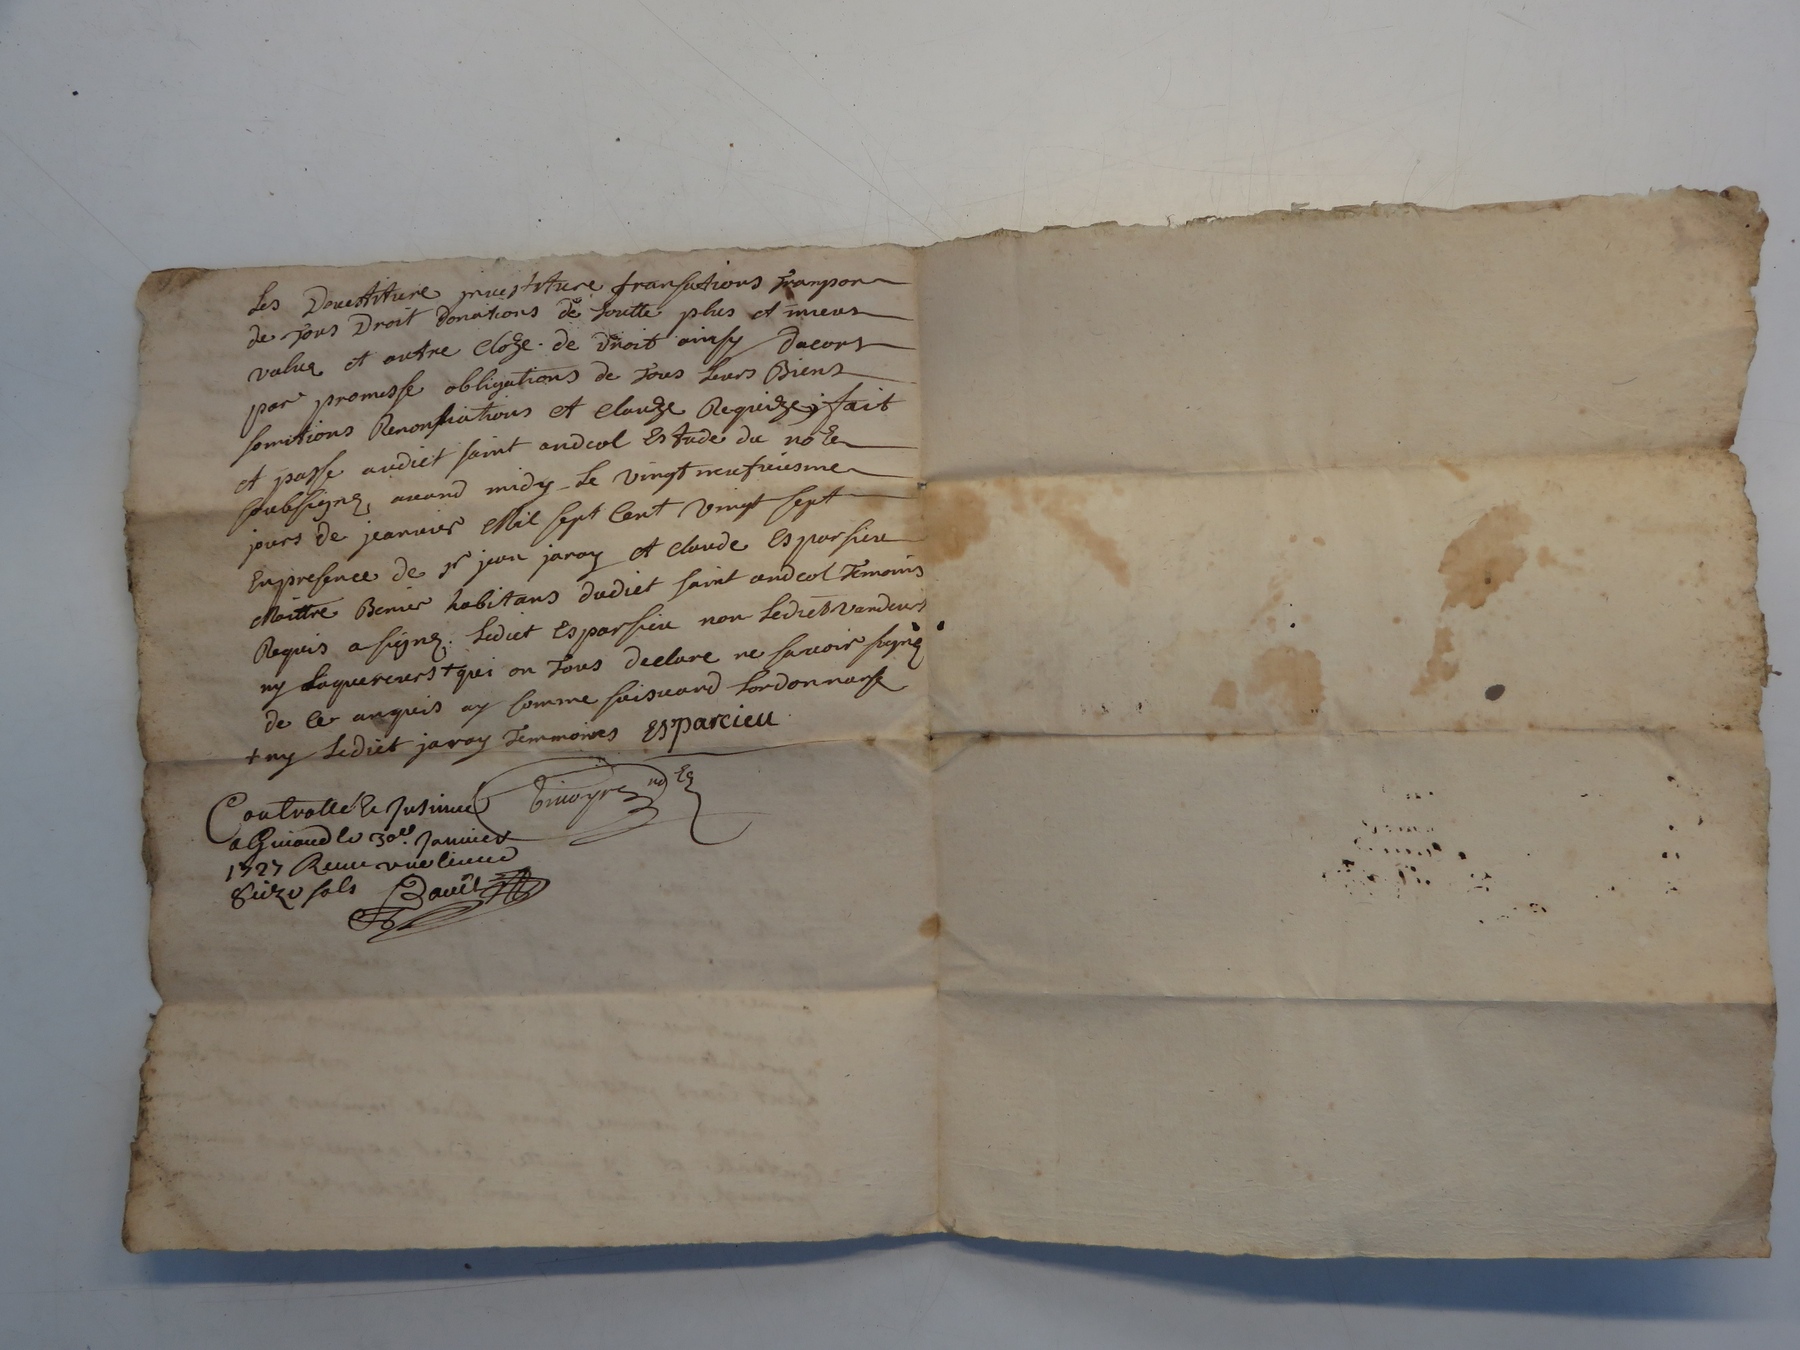 Les Devestiture investiture transations tranpor
de tous Droit donations de toutte plus et mieus
value et autre cloze de droit ainsy dacort
par promesse obligations de tous leurs Biens
somitions Renonsiations et clauze Requize; fait
et passe audict saint andeol Estude du no.re
soubsigne, avand midy Le vingt neufviesme
jours de jeanvier Mil sept cent vingt sept
En presence de sr jean jaray et claude Esparsieu
Maittre habitans dudict saint andeol Temoins
Requis a signe. Ledict Esparsieu non Ledict vandeurs
ny Laquereurs + qui on tous declare ne savoir signe
de ce anquis ay comme suisvand Lordonnanse
+ ny Ledict jaray Temmoins Esparcieu
no.re
Controllé & Insinué
a le 30e. Janvier
1727 Receu une livre
seize sols